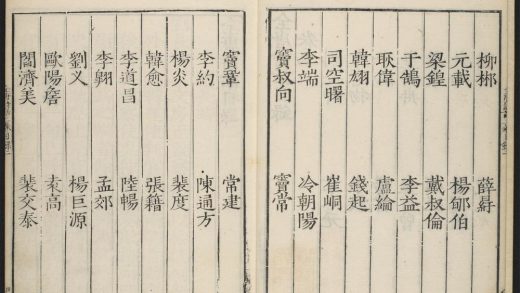 柳郴 薛
元載 楊郇伯
梁鍠 戴叔倫
于鵠 李益
耿偉 盧綸
韓翃 錢起
司空曙 崔峒
李端 冷朝陽
竇叔向 竇常
竇鞏 常建
李約 陳通方
楊炎 裴度
韓愈 張籍
李道昌 陸暢
李翱 孟郊
劉義 楊巨源
歐陽詹 袁高
閻濟美 裴交泰